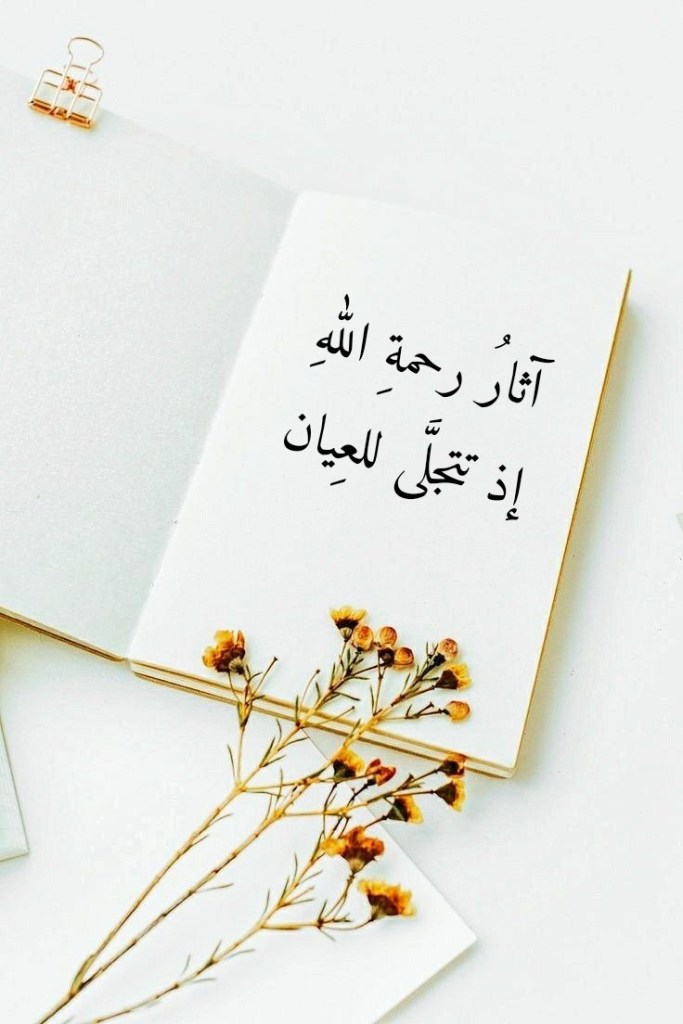 آثارُ رحمةِ اللهِ
إذ تتجلَّى للعِيان